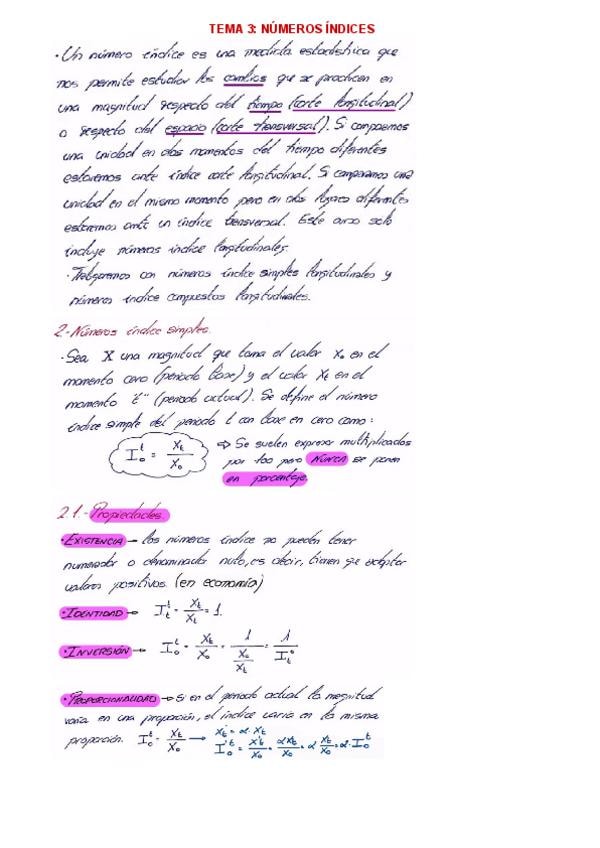 TEMA 3: NÚMEROS ÍNDICES
· Un número índice es una medida estadística que
nos permite estudiar los cambios que se producen en
una magnitud respecto del tiempo (corte longitudinal)
o respecto del espacio (corte transversal). Si comparamos
una unidad en dos momentos del tiempo diferentes
estaremos ante índice corte longitudinal. Si comparamos una
unidad en el mismo momento pero en dos lugares diferentes
estaremos ante un índice transversal. Este curso solo
incluye números índice longitudinales.
· Trabajaremos con números índice simples longitudinales y
números índice compuestos longitudinales.
2.- Números índice simples.
· Sea X una magnitud que toma el valor X₀ en el
momento cero (periodo base) y el valor Xt en el
momento "t" (periodo actual). Se define el número
índice simple del periodo t con base en cero como:
I₀ᵗ = Xt / X₀
⇒ Se suelen expresar multiplicados
por 100 pero NUNCA se ponen
en porcentaje.
2.1.- Propiedades.
· EXISTENCIA → los números índice no pueden tener
numerador o denominador nulo, es decir, tienen que adoptar
valores positivos. (en economía)
· IDENTIDAD → Itᵗ = Xt / Xt = 1.
· INVERSIÓN → I₀ᵗ = Xt / X₀ = 1 / (X₀ / Xt) = 1 / It⁰
· PROPORCIONALIDAD → Si en el periodo actual la magnitud
varía en una proporción, el índice varía en la misma
proporción. I₀ᵗ = Xt / X₀ → Xt' = α · Xt
I₀'ᵗ = Xt' / X₀ = αXt / X₀ = α Xt / X₀ = α · I₀ᵗ